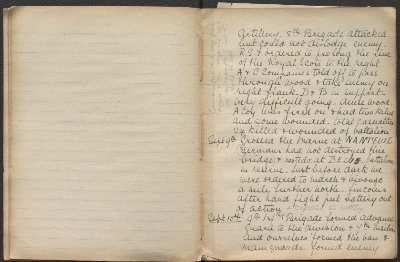 Artillery. 8th Brigade attacked
but could not dislodge enemy.
R.S.F. ordered to prolong the line
of the Royal Scots to the right
A & C Companies told off to pass
through wood & take enemy on
right flank. D & B in support.
Very difficult going. dense wood
A Coy was fired on & had two killed
and some wounded. Total casualties
killed & wounded of battalion
Sept 9th Crossed the Marne at NANTEUIL
Germans had not destroyed fine
bridge & rested at BEZU battalion
in reserve. Just before dark we
were ordered to march & bivouac
a mile further north. Lincolns
after hard fight put battery out
of action
Sept 10th 9th Inf Brigade formed advance
guard to the division & 4th Fusiliers
and ourselves formed the van &
main guards. Found enemy